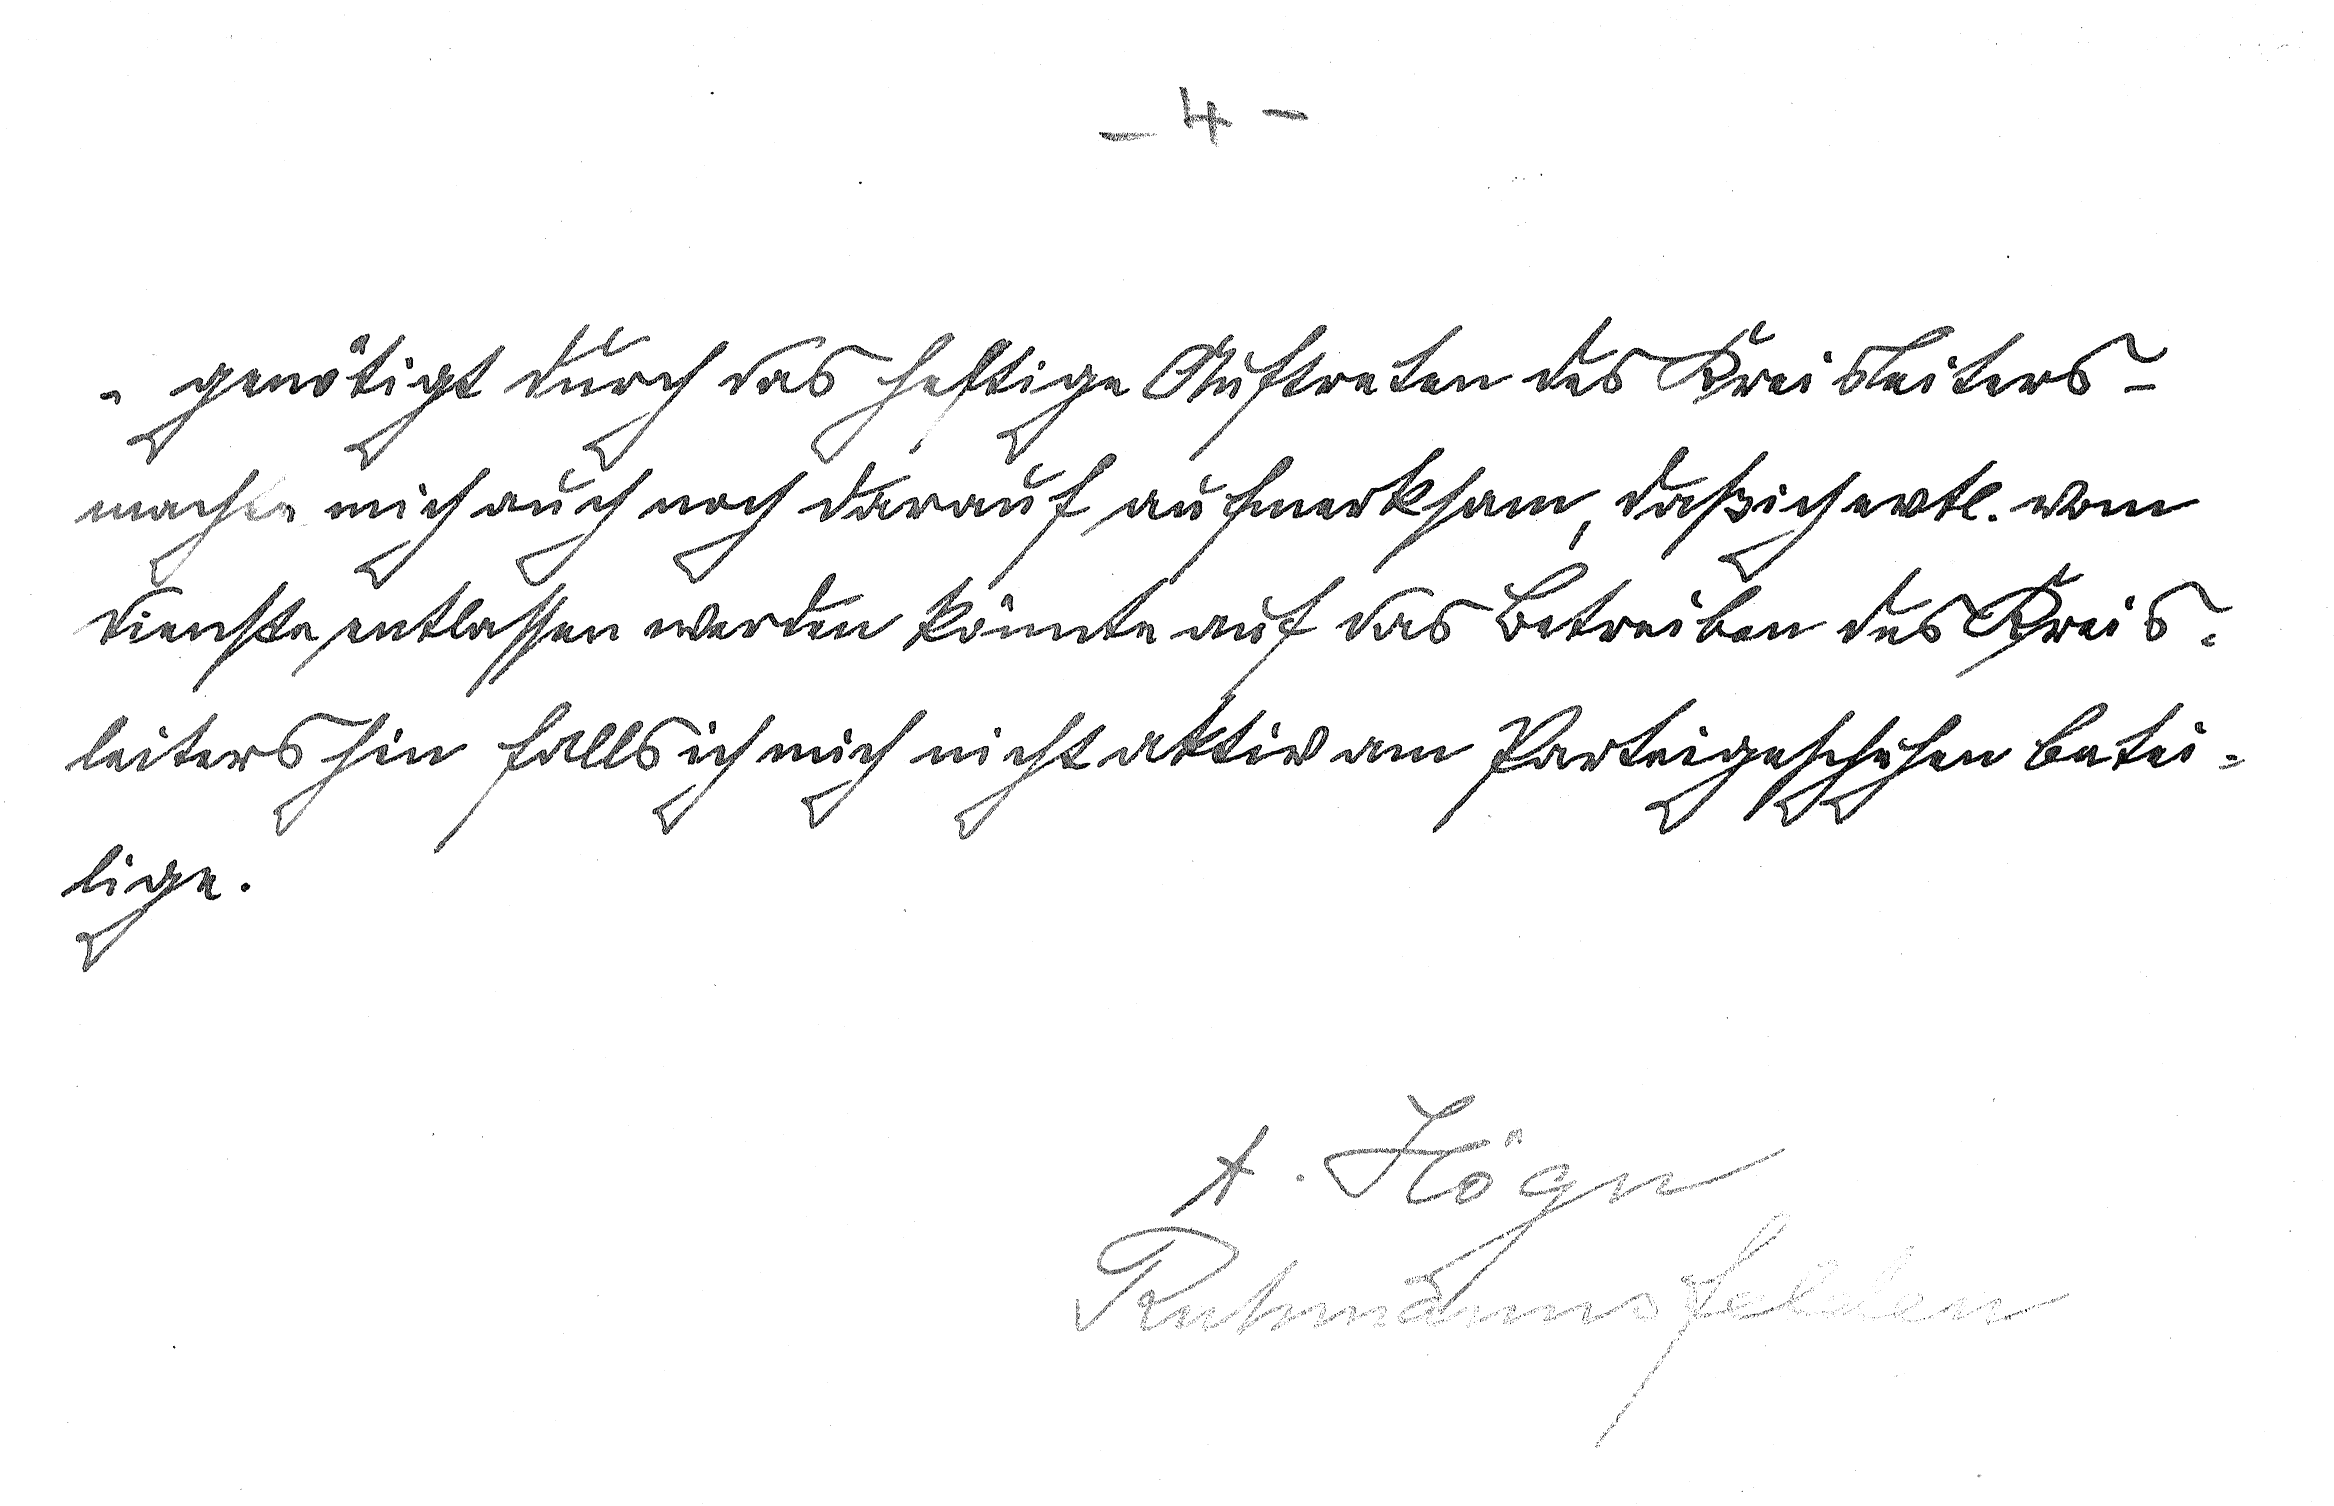 - 4 -
- genötigt durch das heftige Auftreten des Kreisleiters -
machte mich auch noch darauf aufmerksam, daß ich evtl. vom
Dienste entlassen werden könnte auf das Betreiben des Kreis-
leiters hin falls ich mich nicht aktiv am Parteigeschehen betei-
lige.
A. Högn
Ruhmannsfelden